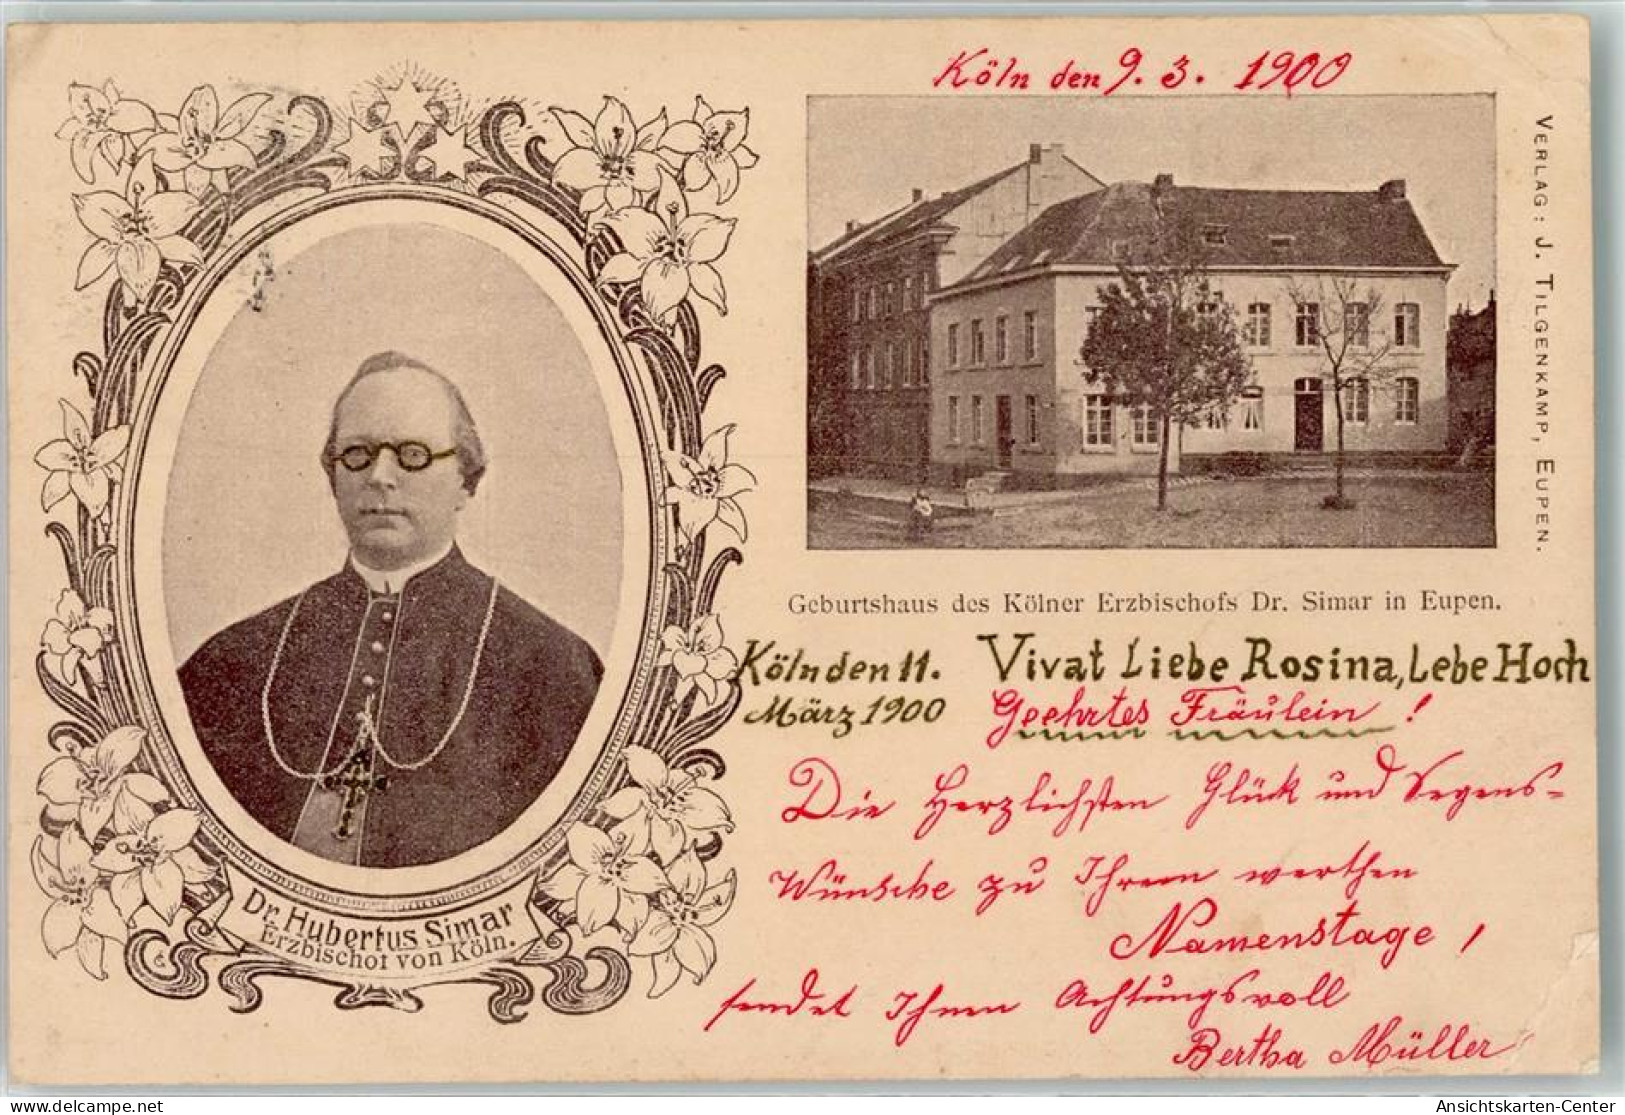 Köln den 9. 3. 1900
VERLAG: J. TILGENKAMP, EUPEN.
Geburtshaus des Kölner Erzbischofs Dr. Simar in Eupen.
Köln den 11. Vivat Liebe Rosina, Lebe Hoch
März 1900 Geehrtes Fräulein !
Die Herzlichsten Glück und Segens-
Wünsche zu Ihrem werthen
Namenstage,
sendet Ihnen Achtungsvoll
Bertha Müller
Dr. Hubertus Simar
Erzbischof von Köln.
www.delcampe.net
postcard
Ansichtskarten-Center